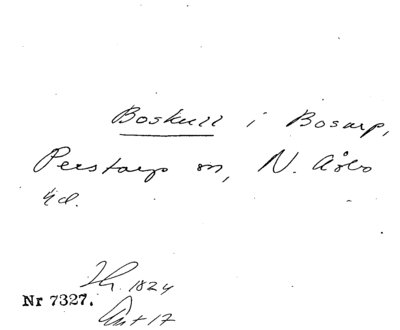 Boskull i Bosarp,
Perstorps sn, N. Åsbo
hd.
Th. 1824
Nr 7327.
Ant 17